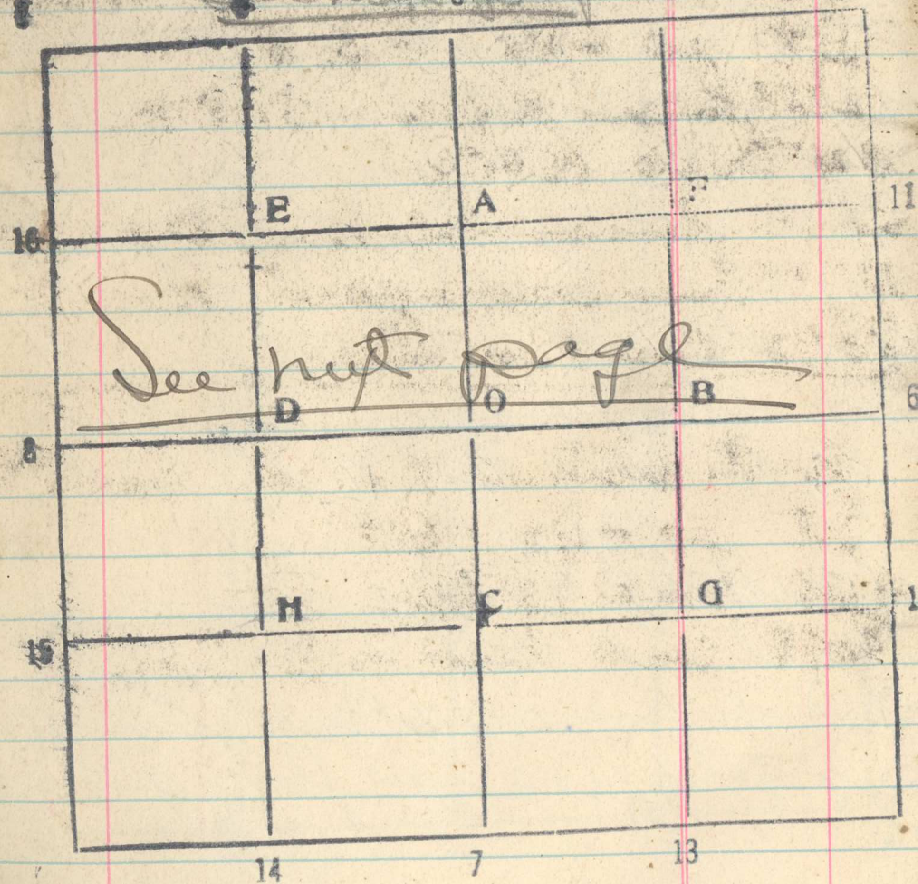 E A F 11
16
See next page
D O B 6
8
H C G 1
15
14 7 13